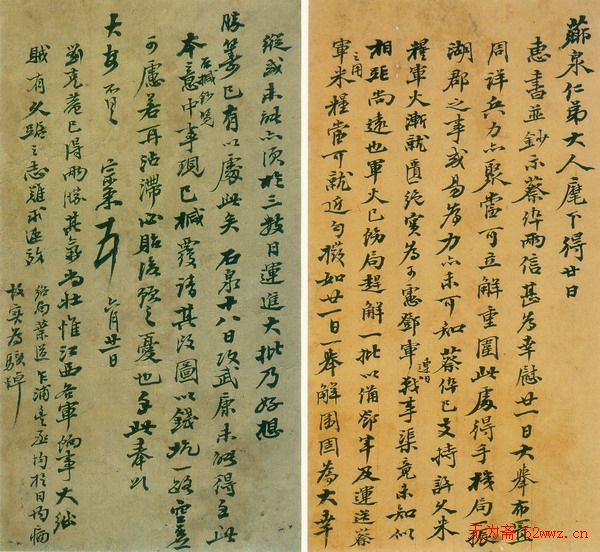 薌泉仁弟大人麾下得廿日
惠書並鈔示蔡倅兩信甚為幸慰廿一日大舉布
周詳兵力亦聚當可立解重圍此處得手機局振
湖郡之事或易為力亦未可知蔡倅已支持許久米
糧軍火漸就匱絕實為可慮鄧軍連日戰事渠竟未知似
相距尚遠也軍火已飭局趕解一批以備鄧軍及運送蔡
軍之用米糧當可就近勻撥如廿一日一舉解圍固為大幸
縱或未能亦須於三數日運進大批乃好想
勝算已有以處此矣石泉十八日攻武康未能得手此
本意中事現已械覆請其改圖以錢坑一路空虛
石械鈔覽
可慮若再沾滯必貽後顧之憂也手此奉
大安不具 宗棠 六月廿一日
劉克菴已得兩勝其氣尚壯惟江西各軍餉事大絀
賊有久踞之志難求速效
无为斋/52wwz.cn